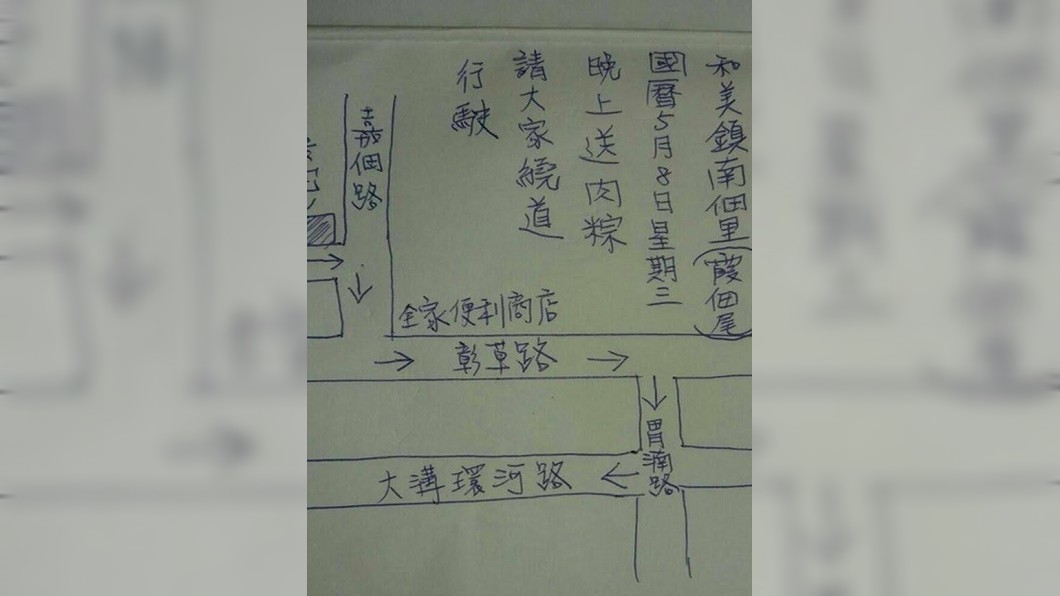 和美鎮南佃里(霞佃尾)
國曆5月8日星期三
晚上送肉粽
請大家繞道
行駛
嘉佃路
全家便利商店
彰草路
胃湳路
大溝環河路